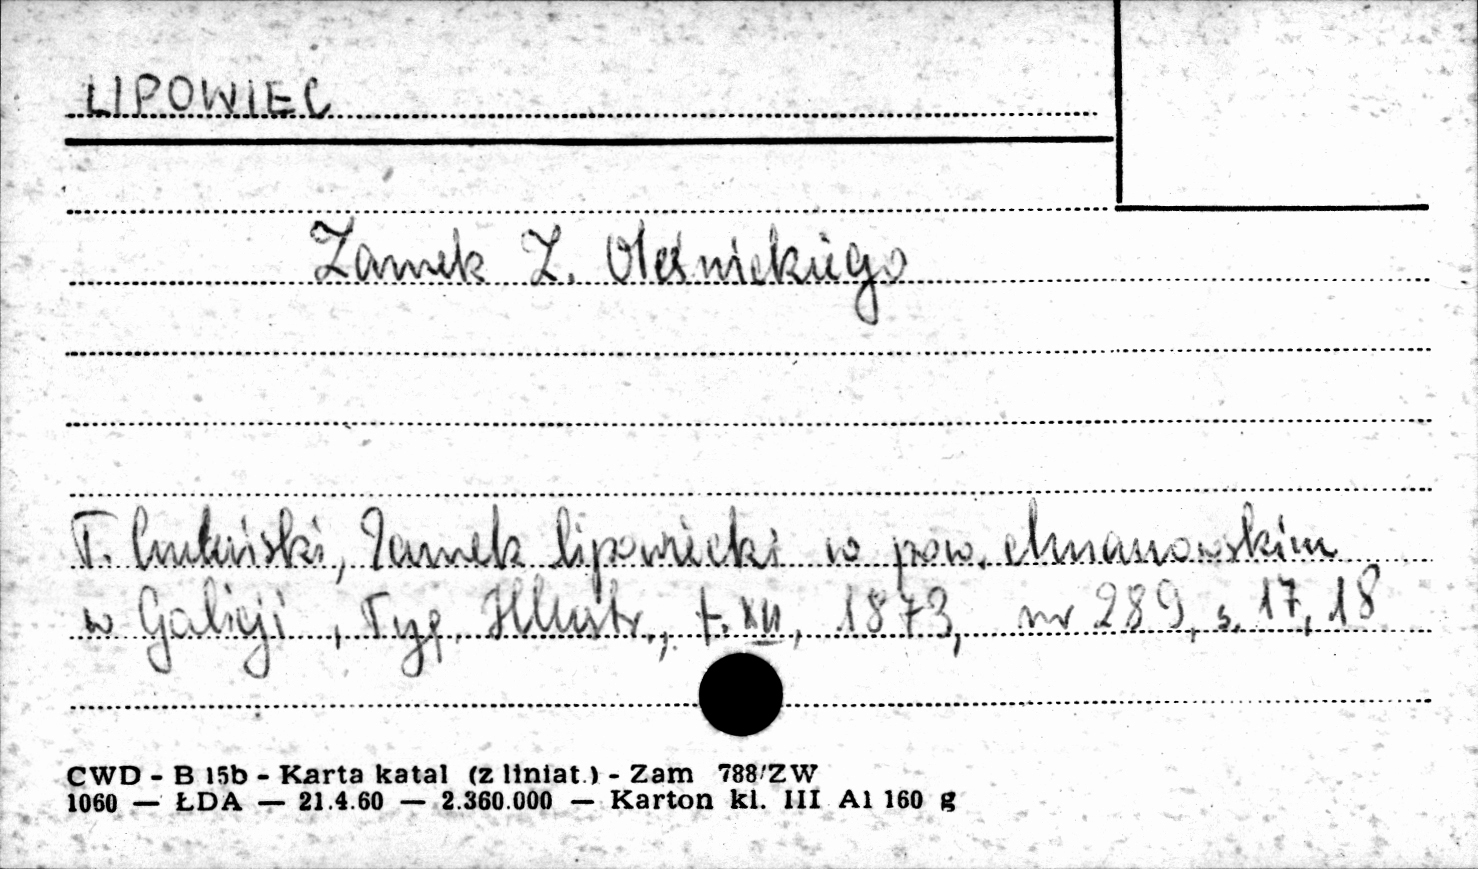 LIPOWIEC
Zamek Z. Oleśnickiego
T. Zamek lipowiecki w pow. chrzanowskim
w Galicji, Tyg. Illustr., t. XII, 1873, nr 289, s. 17, 18
CWD - B 15b - Karta katal (z liniat.) - Zam 788/ZW
1060 — ŁDA — 21.4.60 — 2.360.000 — Karton kl. III A1 160 g